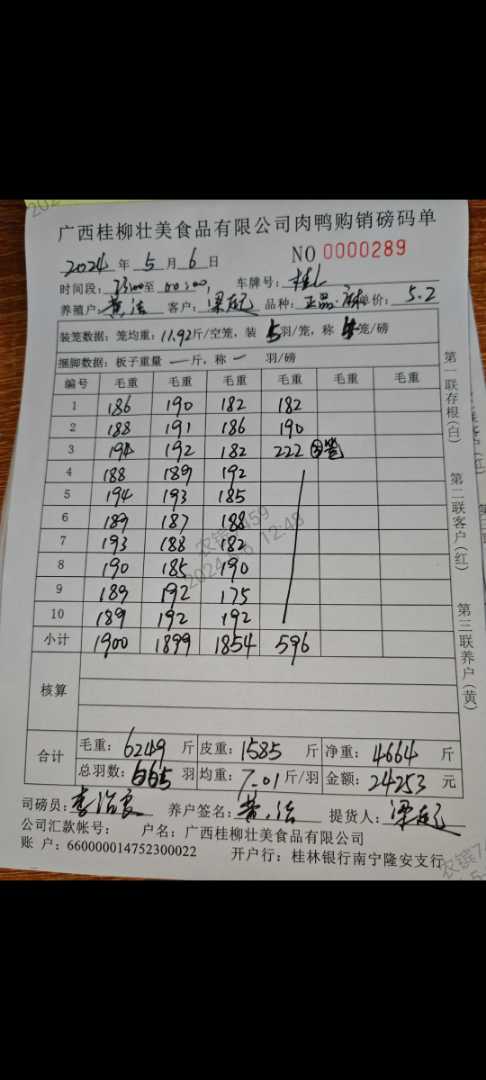 广西桂柳壮美食品有限公司肉鸭购销磅码单
2024 年 5 月 6 日 NO 0000289
时间段: 至 车牌号:
养殖户: 黄 客户: 梁 品种: 正品 单价: 5.2
装笼数据: 笼均重: 11.92斤/空笼, 装 5羽/笼, 称 笼/磅
捆脚数据: 板子重量 一 斤, 称 一 羽/磅
编号 毛重 毛重 毛重 毛重 毛重 毛重
1 186 190 182 182
2 188 191 186 190
3 194 192 182 222
4 188 189 192
5 194 193 185
6 189 187 188
7 193 188 182
8 190 185 190
9 189 192 175
10 189 192 192
小计 1900 1899 1854 596
核算
合计
毛重: 6249 斤 皮重: 1585 斤 净重: 4664 斤
总羽数: 665 羽 均重: 7.01 斤/羽 金额: 24253 元
司磅员: 李 养户签名: 黄 提货人: 梁
公司汇款帐号: 户名: 广西桂柳壮美食品有限公司
账 户: 660000014752300022 开户行: 桂林银行南宁隆安支行
第一联存根(白)
第二联客户(红)
第三联养户(黄)
2024 12:48